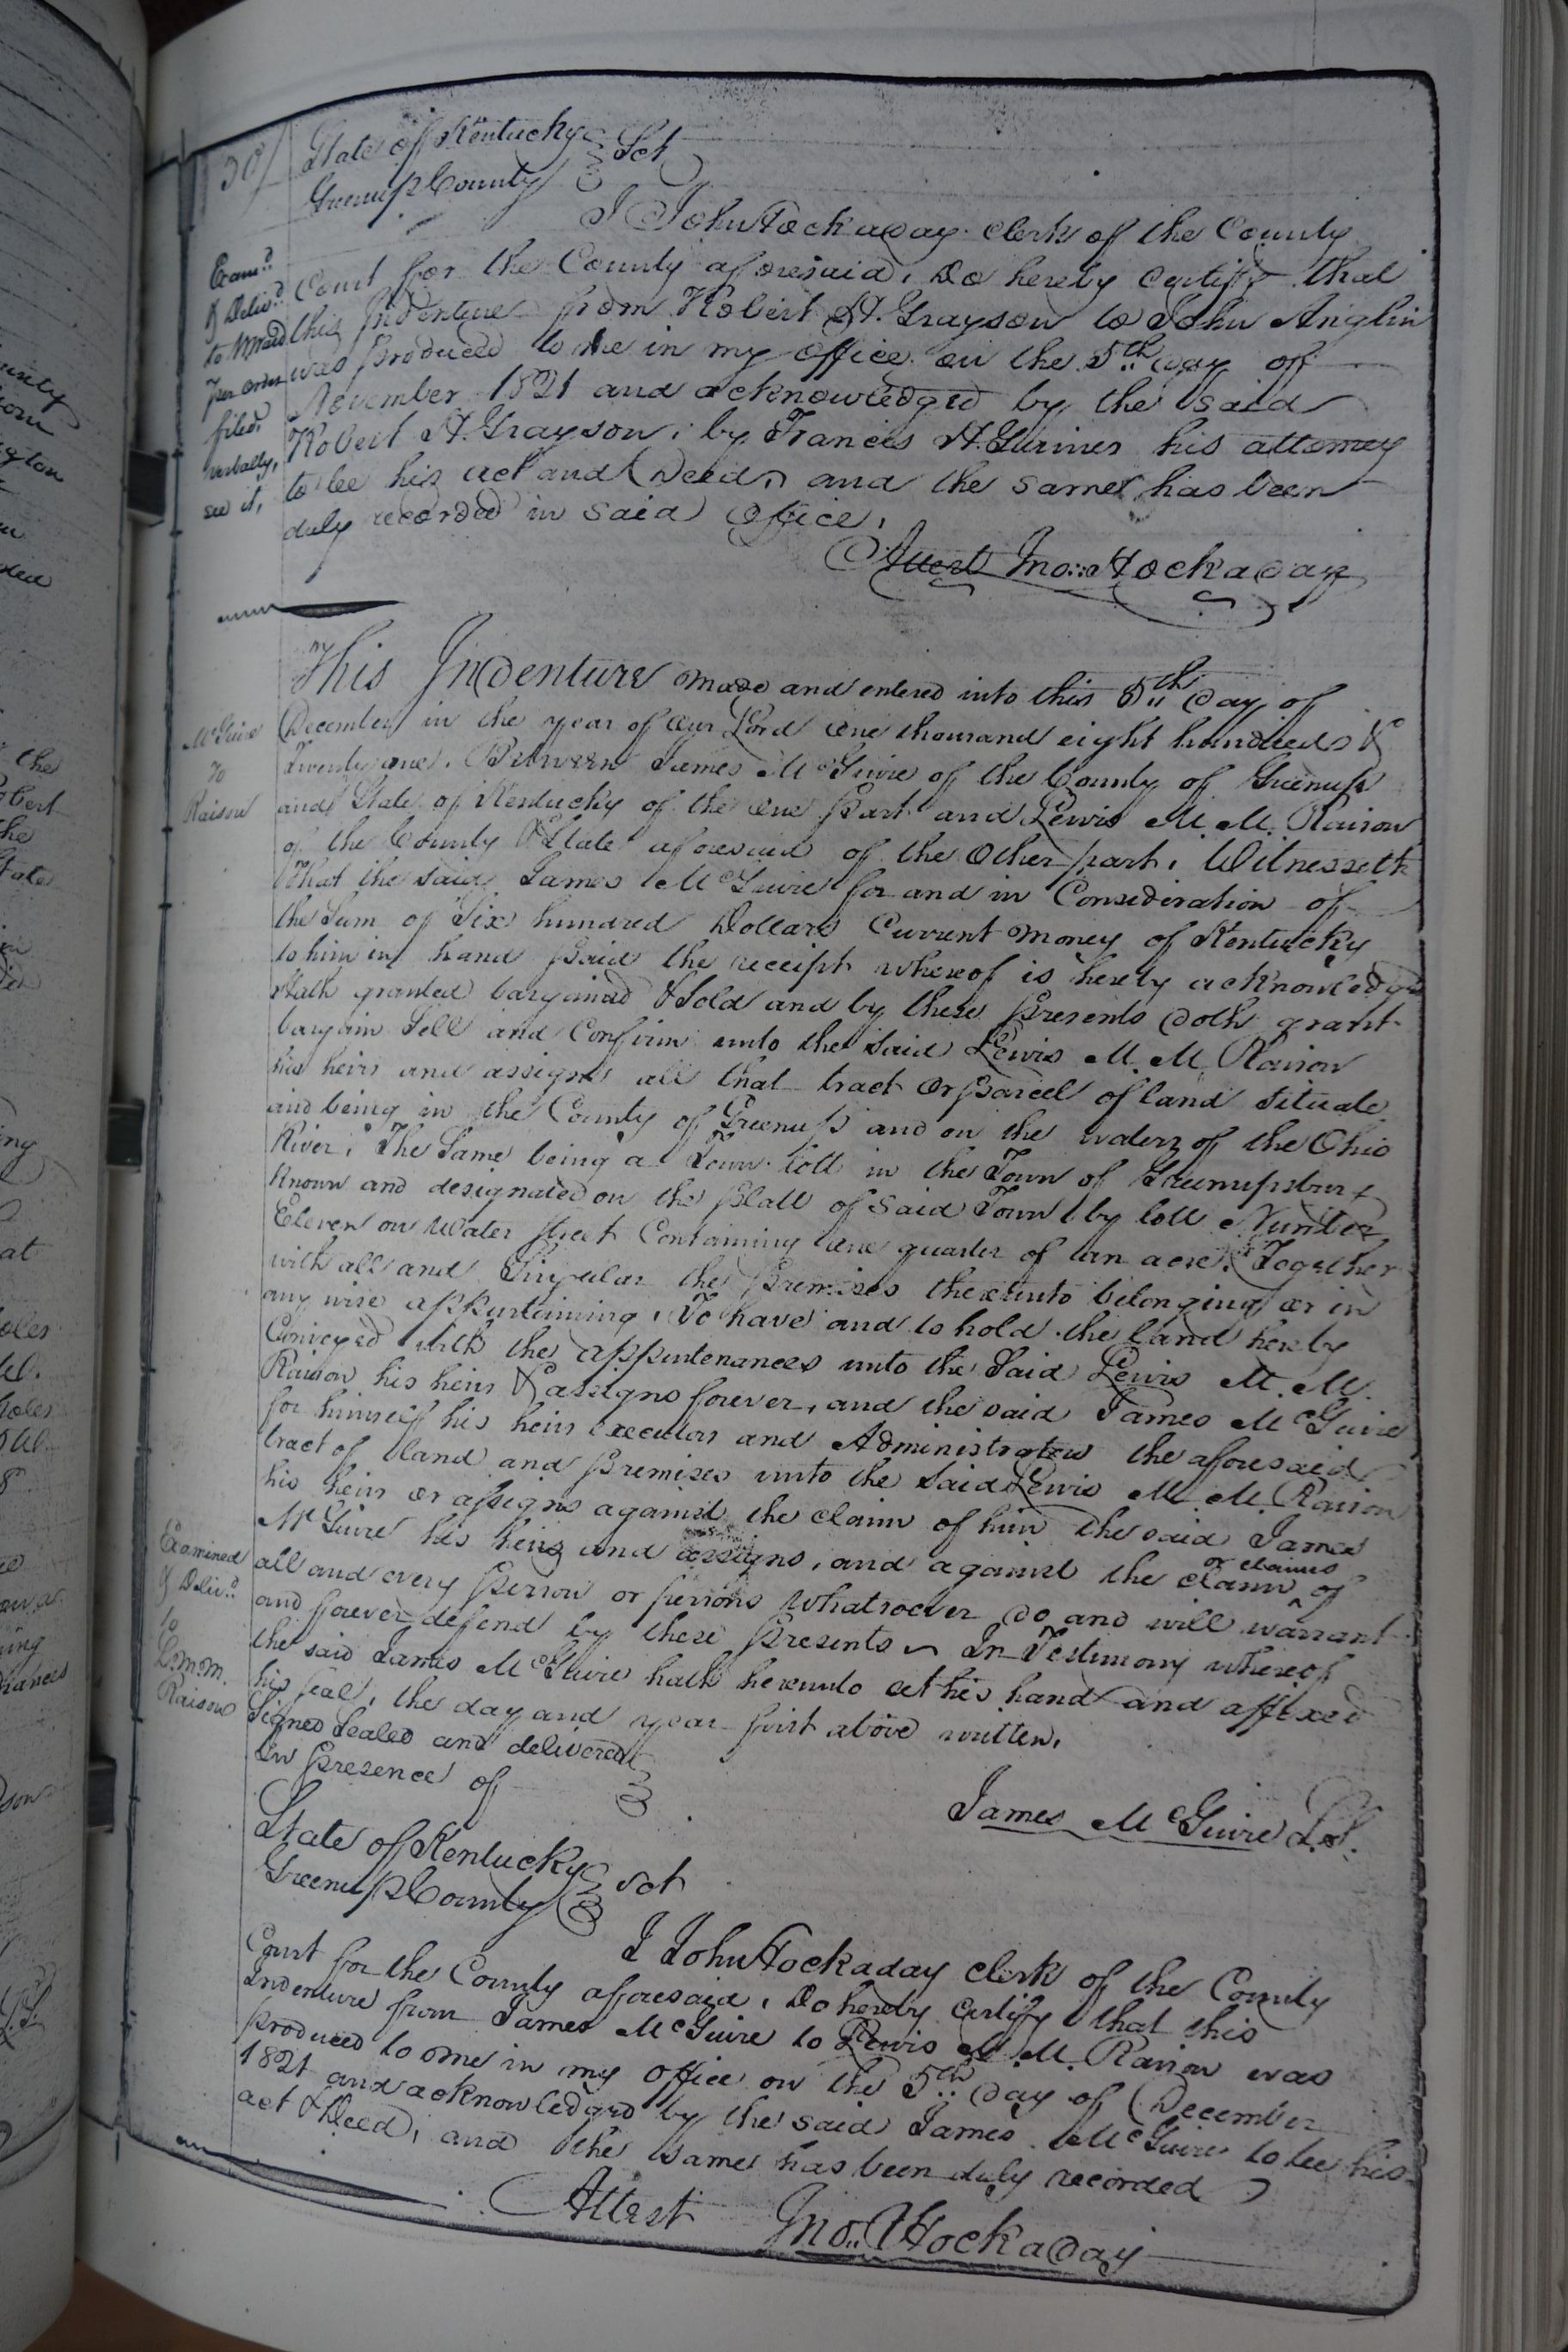 30/
State of Kentucky
Greenup County Sct
I John Hockaday clerk of the County
Court for the County aforesaid, Do hereby certify that
this Indenture from Robert H. Grayson to John Anglin
was produced to me in my office on the 5th day of
November 1821 and acknowledged by the said
Robert H. Grayson, by Francis H. Gaines his attorney
to be his act and Deed, and the same has been
duly recorded in said office,
Attest Jno:: Hockaday
Exam.d
& Deliv.d
to
per order
filed
verbally,
see it,
This Indenture made and entered into this 5th Day of
December in the year of our Lord one thousand eight hundred &
Twenty one. Between James McGuire of the County of Greenup
and State of Kentucky of the one part and Lewis M. M. Raison
of the County & State aforesaid of the Other part, Witnesseth
That the said James McGuire for and in Consideration of
the Sum of Six hundred Dollars Current money of Kentucky
to him in hand paid the receipt whereof is hereby acknowledged
Hath granted bargained & Sold and by these Presents doth grant
bargain Sell and Confirm unto the said Lewis M. M. Raison
his heirs and assigns all that tract or parcel of land Situate
and being in the County of Greenup and on the waters of the Ohio
River, The Same being a Town lott in the Town of Greenupsburg
Known and designated on the Platt of said Town by lott Number
Eleven on Water Street Containing one quarter of an acre, Together
with all and Singular the Premises thereunto belonging or in
any wise appurtaining, To have and to hold the land hereby
Conveyed with the appurtenances unto the Said Lewis M. M.
Raison his heirs & assigns forever, and the said James McGuire
for himself his heirs Executors and Administrators the aforesaid
tract of land and premises unto the said Lewis M. M. Raison
his heirs or assigns against the claim of him the said James
McGuire his heirs and assigns, and against the claim or claims of
all and every person or persons whatsoever do and will warrant
and forever defend by these Presents In Testimony whereof
the said James McGuire hath hereunto set his hand and affixed
his seal, the day and year first above written,
Signed Sealed and delivered
In presence of
James McGuire L.S.
McGuire
To
Raison
Examined
& Deliv.d
to
L.M.M.
Raison
State of Kentucky
Greenup County Sct
I John Hockaday clerk of the County
Court for the County aforesaid, Do hereby certify that this
Indenture from James McGuire to Lewis M. M. Raison was
produced to me in my office on the 5th day of December
1821 and acknowledged by the said James McGuire to be his
act & Deed, and the same has been duly recorded
Attest Jno.. Hockaday